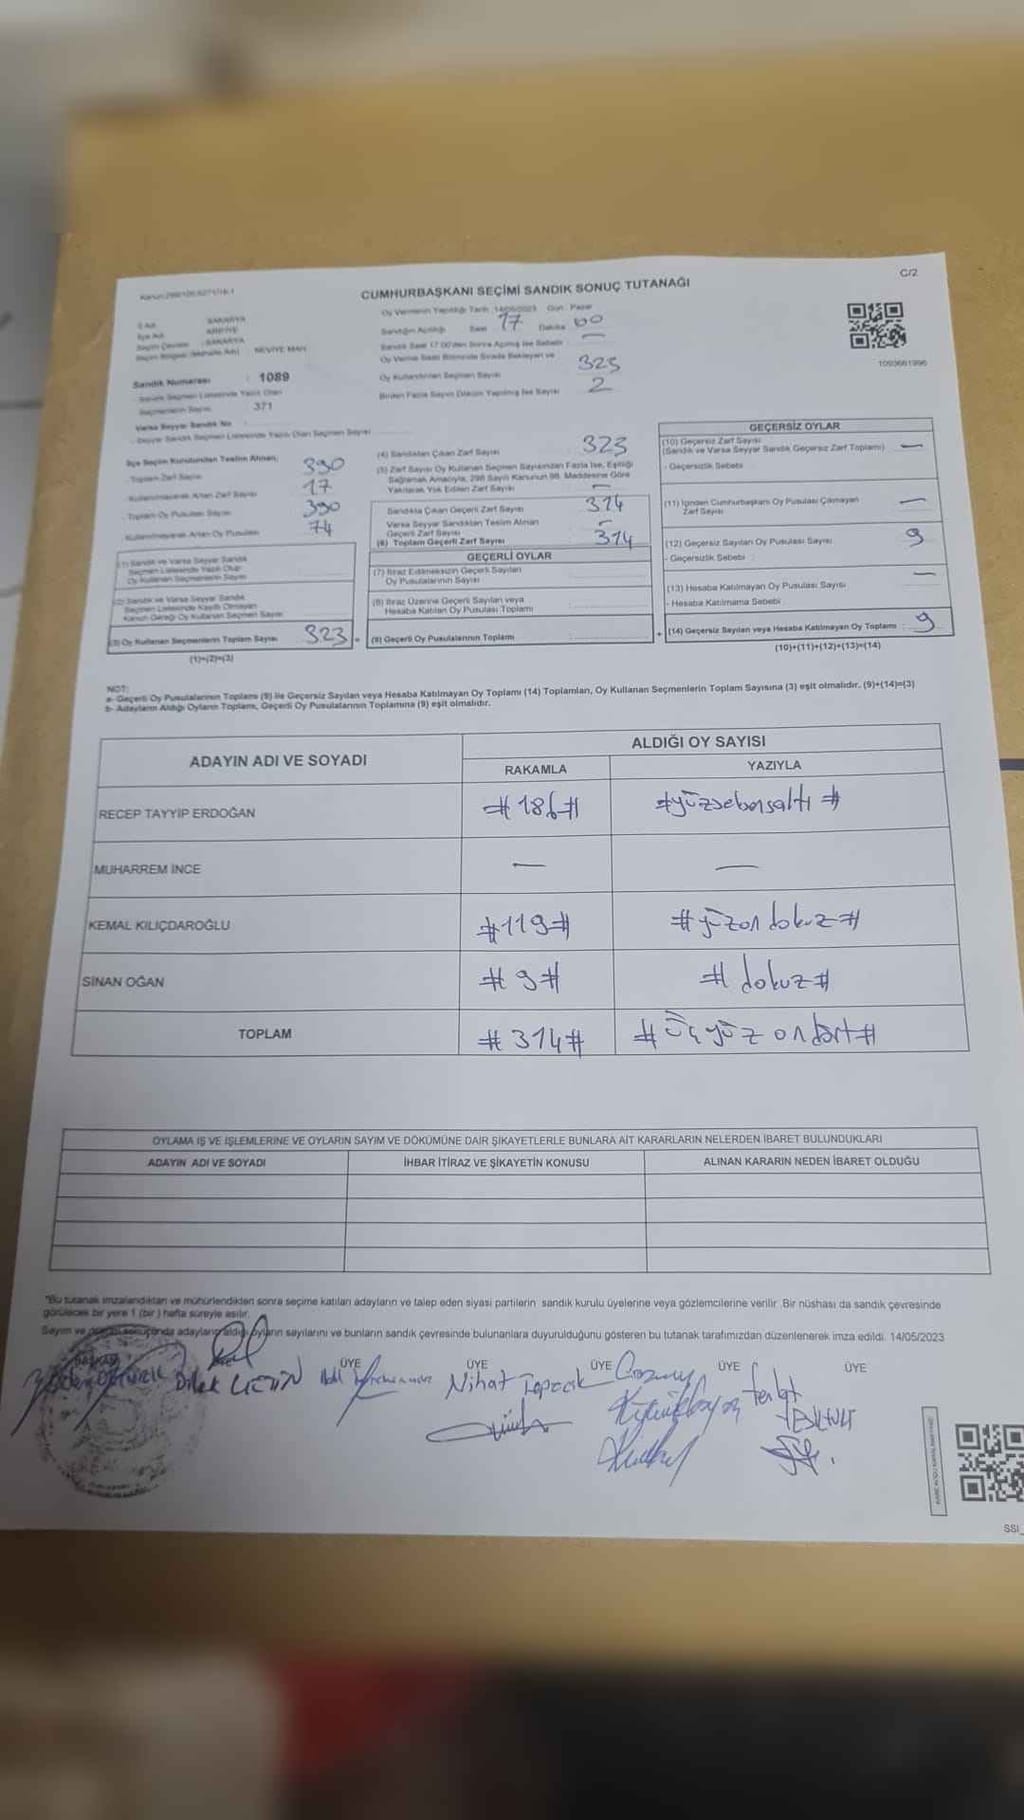 C/2
CUMHURBAŞKANI SEÇİMİ SANDIK SONUÇ TUTANAĞI
Oy Vermenin Yapıldığı Tarih 14/05/2023 Gün Pazar
İl Adı SAKARYA
İlçe Adı ARİFİYE
Seçim Çevresi : SAKARYA
NEVİYE MAH
Sandığın Açıldığı Saat 17 Dakika 00
Sandık Saat 17.00'den Sonra Açılmış İse Sebebi —
Oy Verme Saati Bitiminde Sırada Bekleyen ve
Oy Kullandırılan Seçmen Sayısı 323
Birden Fazla Sayım Döküm Yapılmış İse Sayısı 2
1093661996
Sandık Numarası : 1089
Sandık Seçmen Listesinde Yazılı Olan
Seçmenlerin Sayısı 371
Varsa Seyyar Sandık No
Seyyar Sandık Seçmen Listesinde Yazılı Olan Seçmen Sayısı
İlçe Seçim Kurulundan Teslim Alınan;
Toplam Zarf Sayısı 390
Kullanılmayarak Artan Zarf Sayısı 17
Toplam Oy Pusulası Sayısı 390
Kullanılmayarak Artan Oy Pusulası 74
(1) Sandık ve Varsa Seyyar Sandık
Seçmen Listesinde Yazılı Olup
Oy Kullanan Seçmenlerin Sayısı
(2) Sandık ve Varsa Seyyar Sandık
Seçmen Listesinde Kayıtlı Olmayan
Kanun Gereği Oy Kullanan Seçmen Sayısı
(3) Oy Kullanan Seçmenlerin Toplam Sayısı 323
(1)+(2)=(3)
(4) Sandıktan Çıkan Zarf Sayısı 323
(5) Zarf Sayısı Oy Kullanan Seçmen Sayısından Fazla İse, Eşitliği
Sağlamak Amacıyla, 298 Sayılı Kanunun 98. Maddesine Göre
Yakılarak Yok Edilen Zarf Sayısı —
Sandıkta Çıkan Geçerli Zarf Sayısı 314
Varsa Seyyar Sandıktan Teslim Alınan
Geçerli Zarf Sayısı —
(6) Toplam Geçerli Zarf Sayısı 314
GEÇERLİ OYLAR
(7) İtiraz Edilmeksizin Geçerli Sayılan
Oy Pusulalarının Sayısı
(8) İtiraz Üzerine Geçerli Sayılan veya
Hesaba Katılan Oy Pusulası Toplamı
(9) Geçerli Oy Pusulalarının Toplamı
GEÇERSİZ OYLAR
(10) Geçersiz Zarf Sayısı
(Sandık ve Varsa Seyyar Sandık Geçersiz Zarf Toplamı) —
- Geçersizlik Sebebi
(11) İçinden Cumhurbaşkanı Oy Pusulası Çıkmayan
Zarf Sayısı —
(12) Geçersiz Sayılan Oy Pusulası Sayısı 9
- Geçersizlik Sebebi
(13) Hesaba Katılmayan Oy Pusulası Sayısı —
- Hesaba Katılmama Sebebi
(14) Geçersiz Sayılan veya Hesaba Katılmayan Oy Toplamı 9
(10)+(11)+(12)+(13)=(14)
NOT:
a- Geçerli Oy Pusulalarının Toplamı (9) ile Geçersiz Sayılan veya Hesaba Katılmayan Oy Toplamı (14) Toplamları, Oy Kullanan Seçmenlerin Toplam Sayısına (3) eşit olmalıdır. (9)+(14)=(3)
b- Adayların Aldığı Oyların Toplamı, Geçerli Oy Pusulalarının Toplamına (9) eşit olmalıdır.
ADAYIN ADI VE SOYADI
ALDIĞI OY SAYISI
RAKAMLA YAZIYLA
RECEP TAYYİP ERDOĞAN #186# #yüzseksenaltı#
MUHARREM İNCE — —
KEMAL KILIÇDAROĞLU #119# #yüzondokuz#
SİNAN OĞAN #9# #dokuz#
TOPLAM #314# #üçyüzondört#
OYLAMA İŞ VE İŞLEMLERİNE VE OYLARIN SAYIM VE DÖKÜMÜNE DAİR ŞİKAYETLERLE BUNLARA AİT KARARLARIN NELERDEN İBARET BULUNDUKLARI
ADAYIN ADI VE SOYADI İHBAR İTİRAZ VE ŞİKAYETİN KONUSU ALINAN KARARIN NEDEN İBARET OLDUĞU
"Bu tutanak imzalandıktan ve mühürlendikten sonra seçime katılan adayların ve talep eden siyasi partilerin sandık kurulu üyelerine veya gözlemcilerine verilir. Bir nüshası da sandık çevresinde
görülecek bir yere 1 (bir) hafta süreyle asılır.
Sayım ve döküm sonucunda adayların aldığı oyların sayılarını ve bunların sandık çevresinde bulunanlara duyurulduğunu gösteren bu tutanak tarafımızdan düzenlenerek imza edildi. 14/05/2023
ÜYE ÜYE ÜYE ÜYE ÜYE
Dilek ÇETİN
Nihat Topacık
SSI_